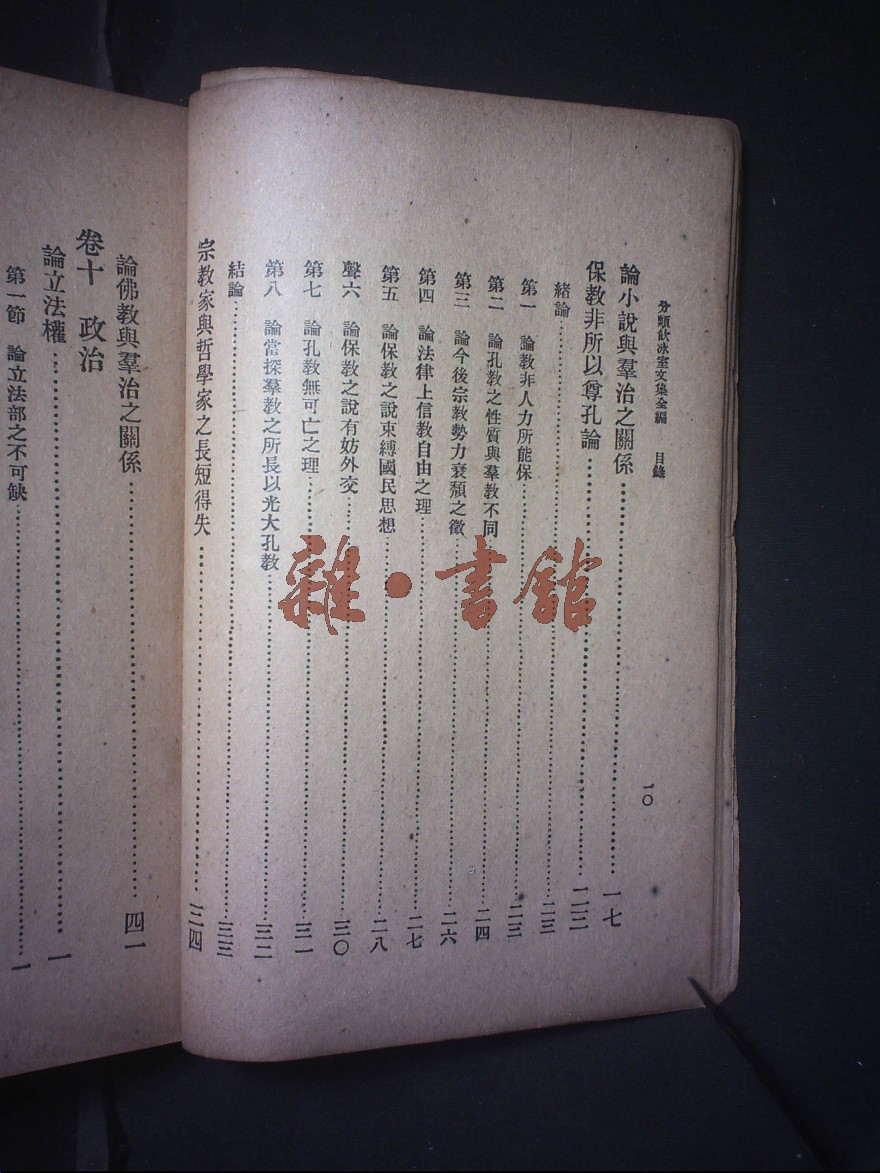 分類飲冰室文集全編 目錄 一〇
論小說與羣治之關係……一七
保教非所以尊孔論……二二
緒論……二三
第一 論教非人力所能保……二三
第二 論孔教之性質與羣教不同……二四
第三 論今後宗教勢力衰頹之徵……二六
第四 論法律上信教自由之理……二七
第五 論保教之說束縛國民思想……二八
聲六 論保教之說有妨外交……三〇
第七 論孔教無可亡之理……三一
第八 論當採羣教之所長以光大孔教……三二
結論……三三
宗教家與哲學家之長短得失……三四
論佛教與羣治之關係……四一
卷十 政治
論立法權……一
第一節 論立法部之不可缺……一
雜·書館